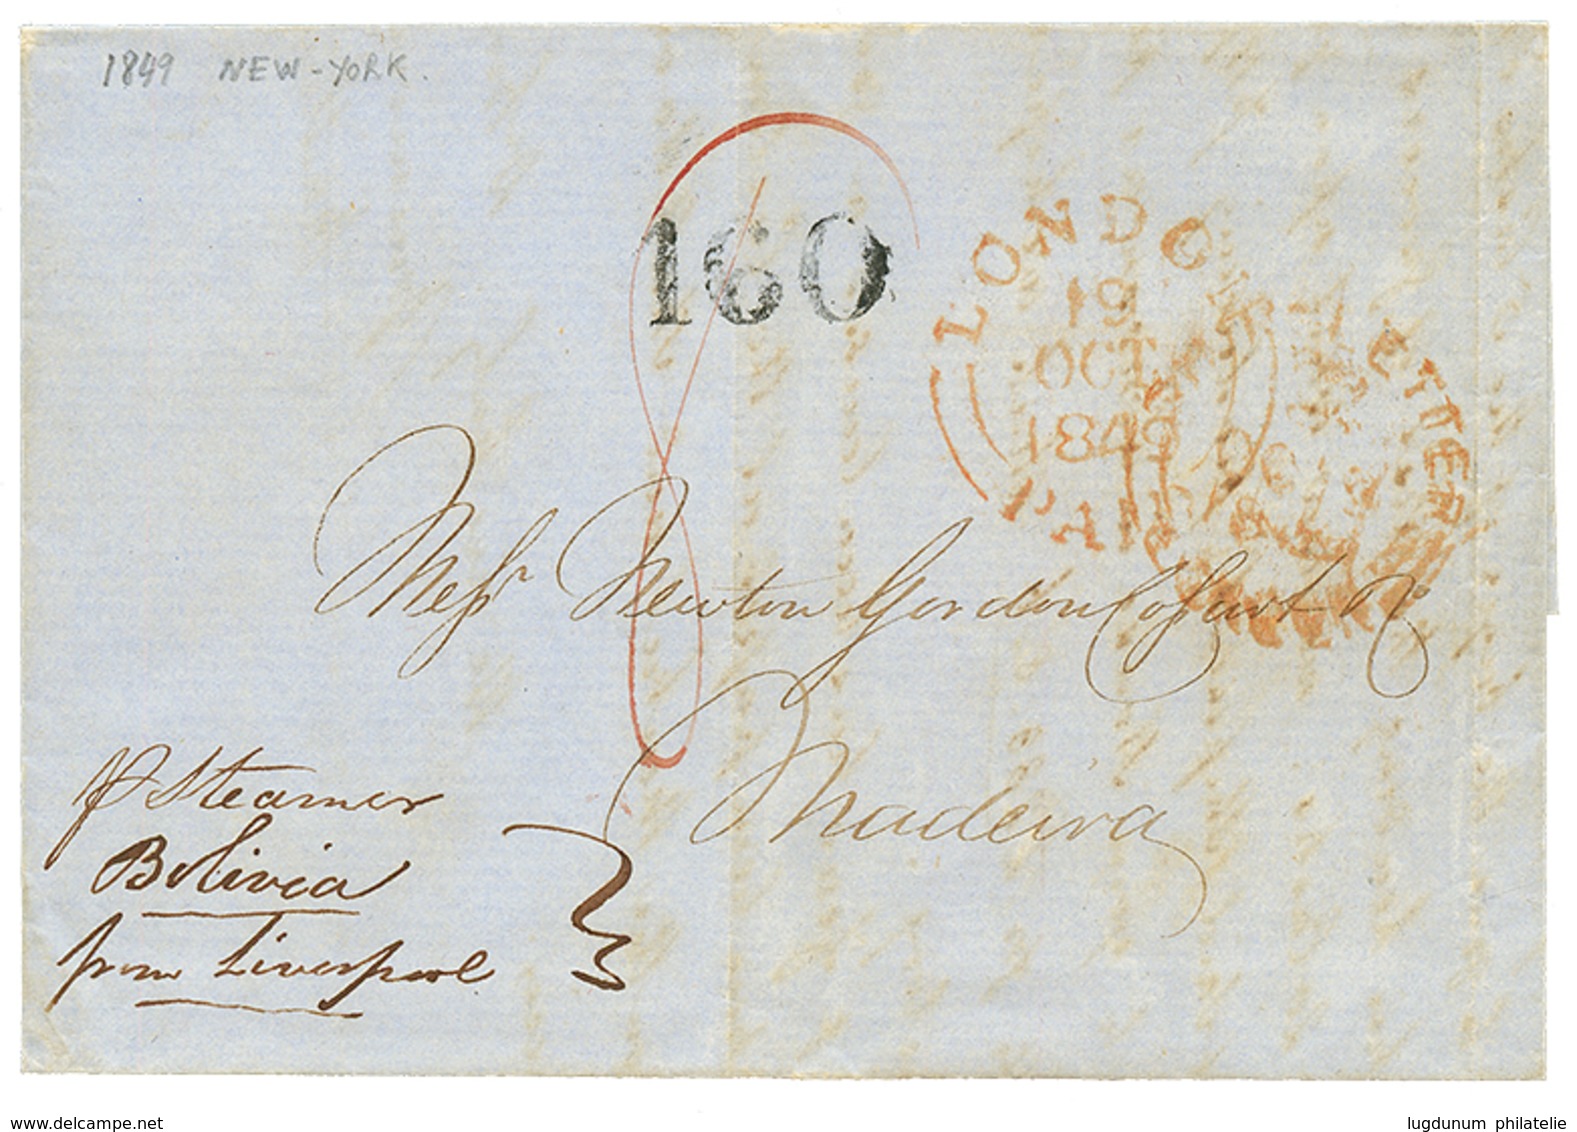 1849 NEW-YORK.
160
LONDON
19
OCT
1849
PAID
LETTER
Messrs Newton Gordon Cossart & Co
Madeira
pr Steamer
Bolivia
from Liverpool
www.delcampe.net
lugdunum philatelie